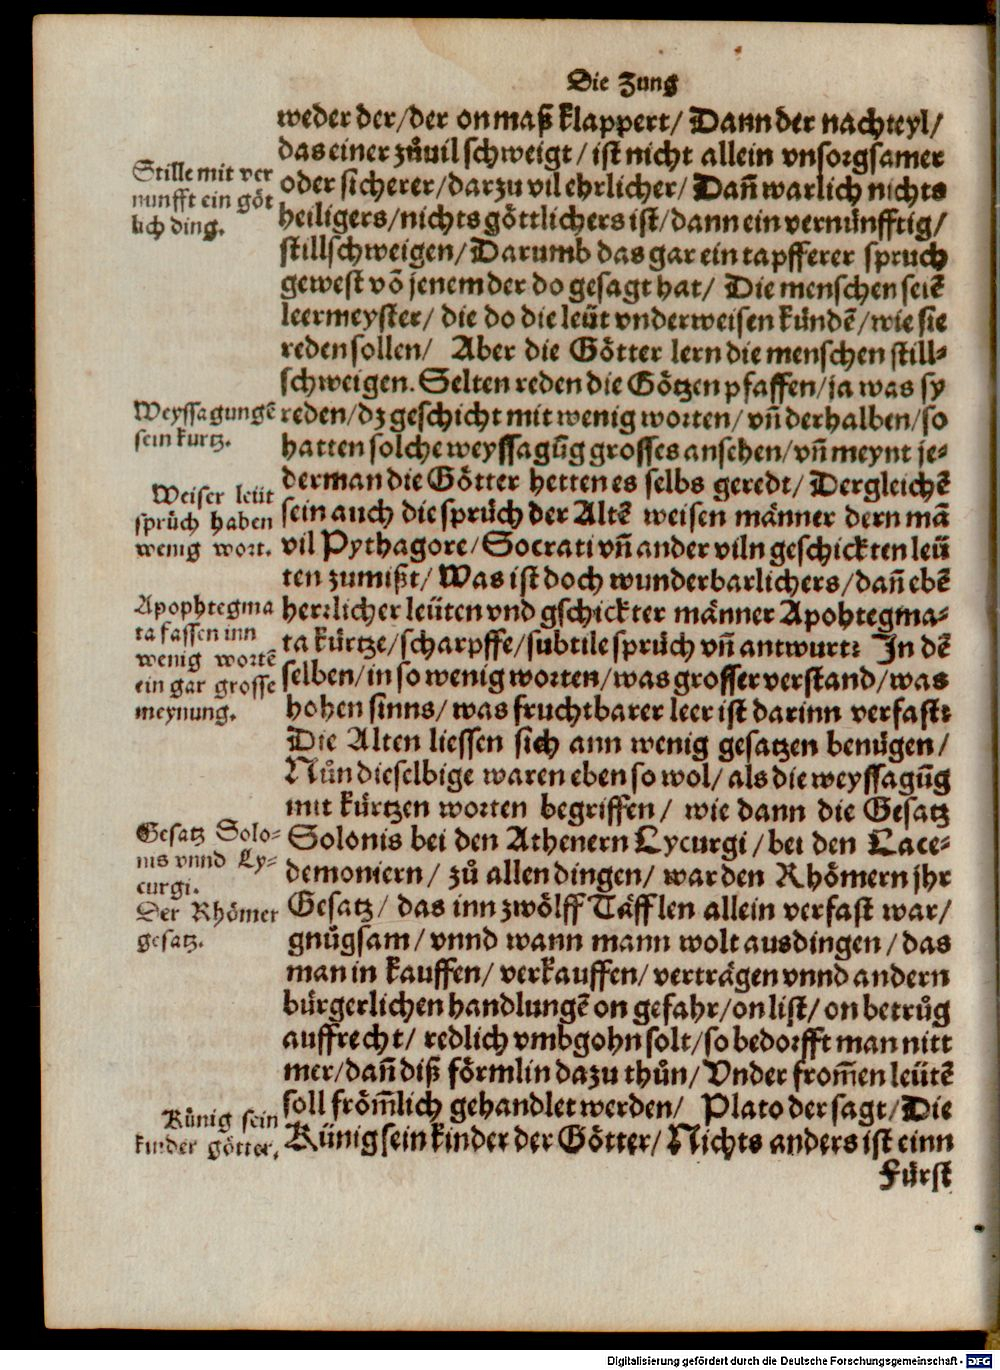 Die Zung
weder der/der on maß klappert/ Dann der nachteyl/
das einer zůuil schweigt/ ist nicht allein vnsorgsamer
oder sicherer/darzu vil ehrlicher/ Dañ warlich nichts
heiligers/nichts göttlichers ist/dann ein vernünfftig/
stillschweigen/ Darumb das gar ein tapfferer spruch
gewest võ jenem der do gesagt hat/ Die menschen seiẽ
leermeyster/ die do die leüt vnderweisen kündẽ/wie sie
reden sollen/ Aber die Götter lern die menschen still-
schweigen. Selten reden die Götzen pfaffen/ja was sy
reden/dz geschicht mit wenig worten/ vñ derhalben/so
hatten solche weyssagũg grosses ansehen/vñ meynt je-
derman die Götter hetten es selbs geredt/ Dergleichẽ
sein auch die sprüch der Altẽ weisen männer dern mã
vil Pythagore/Socrati vñ ander viln geschickten leü
ten zumißt/ Was ist doch wunderbarlichers/dañ ebẽ
herrlicher leüten vnd gschickter männer Apohtegma-
ta kürtze/scharpffe/subtile sprüch vñ antwurt? In dẽ
selben/in so wenig worten/was grosser verstand/was
hohen sinns/was fruchtbarer leer ist darinn verfast?
Die Alten liessen sich ann wenig gesatzen benügen/
Nůn dieselbige waren eben so wol/ als die weyssagũg
mit kürtzen worten begriffen/ wie dann die Gesatz
Solonis bei den Athenern Lycurgi/bei den Lace-
demoniern/ zů allen dingen/ war den Rhömern jhr
Gesatz/ das inn zwölff Täfflen allein verfast war/
gnůgsam/ vnnd wann mann wolt ausdingen/das
man in kauffen/ verkauffen/ verträgen vnnd andern
bürgerlichen handlungẽ on gefahr/on list/ on betrůg
auffrecht/ redlich vmbgohn solt/so bedorfft man nitt
mer/dañ diß förmlin dazu thůn/ Vnder from̃en leütẽ
soll fröm̃lich gehandlet werden/ Plato der sagt/Die
Künig sein kinder der Götter/ Nichts anders ist einn
Fürst
Stille mit ver
nunfft ein göt
lich ding.
Weyssagungẽ
sein kurtz.
Weiser leüt
sprüch haben
wenig wort.
Apophtegma
ta fassen inn
wenig wortẽ
ein gar grosse
meynung.
Gesatz Solo-
nis vnnd Ly-
curgi.
Der Rhömer
gesatz.
Künig sein
kinder götter.
Digitalisierung gefördert durch die Deutsche Forschungsgemeinschaft - DFG